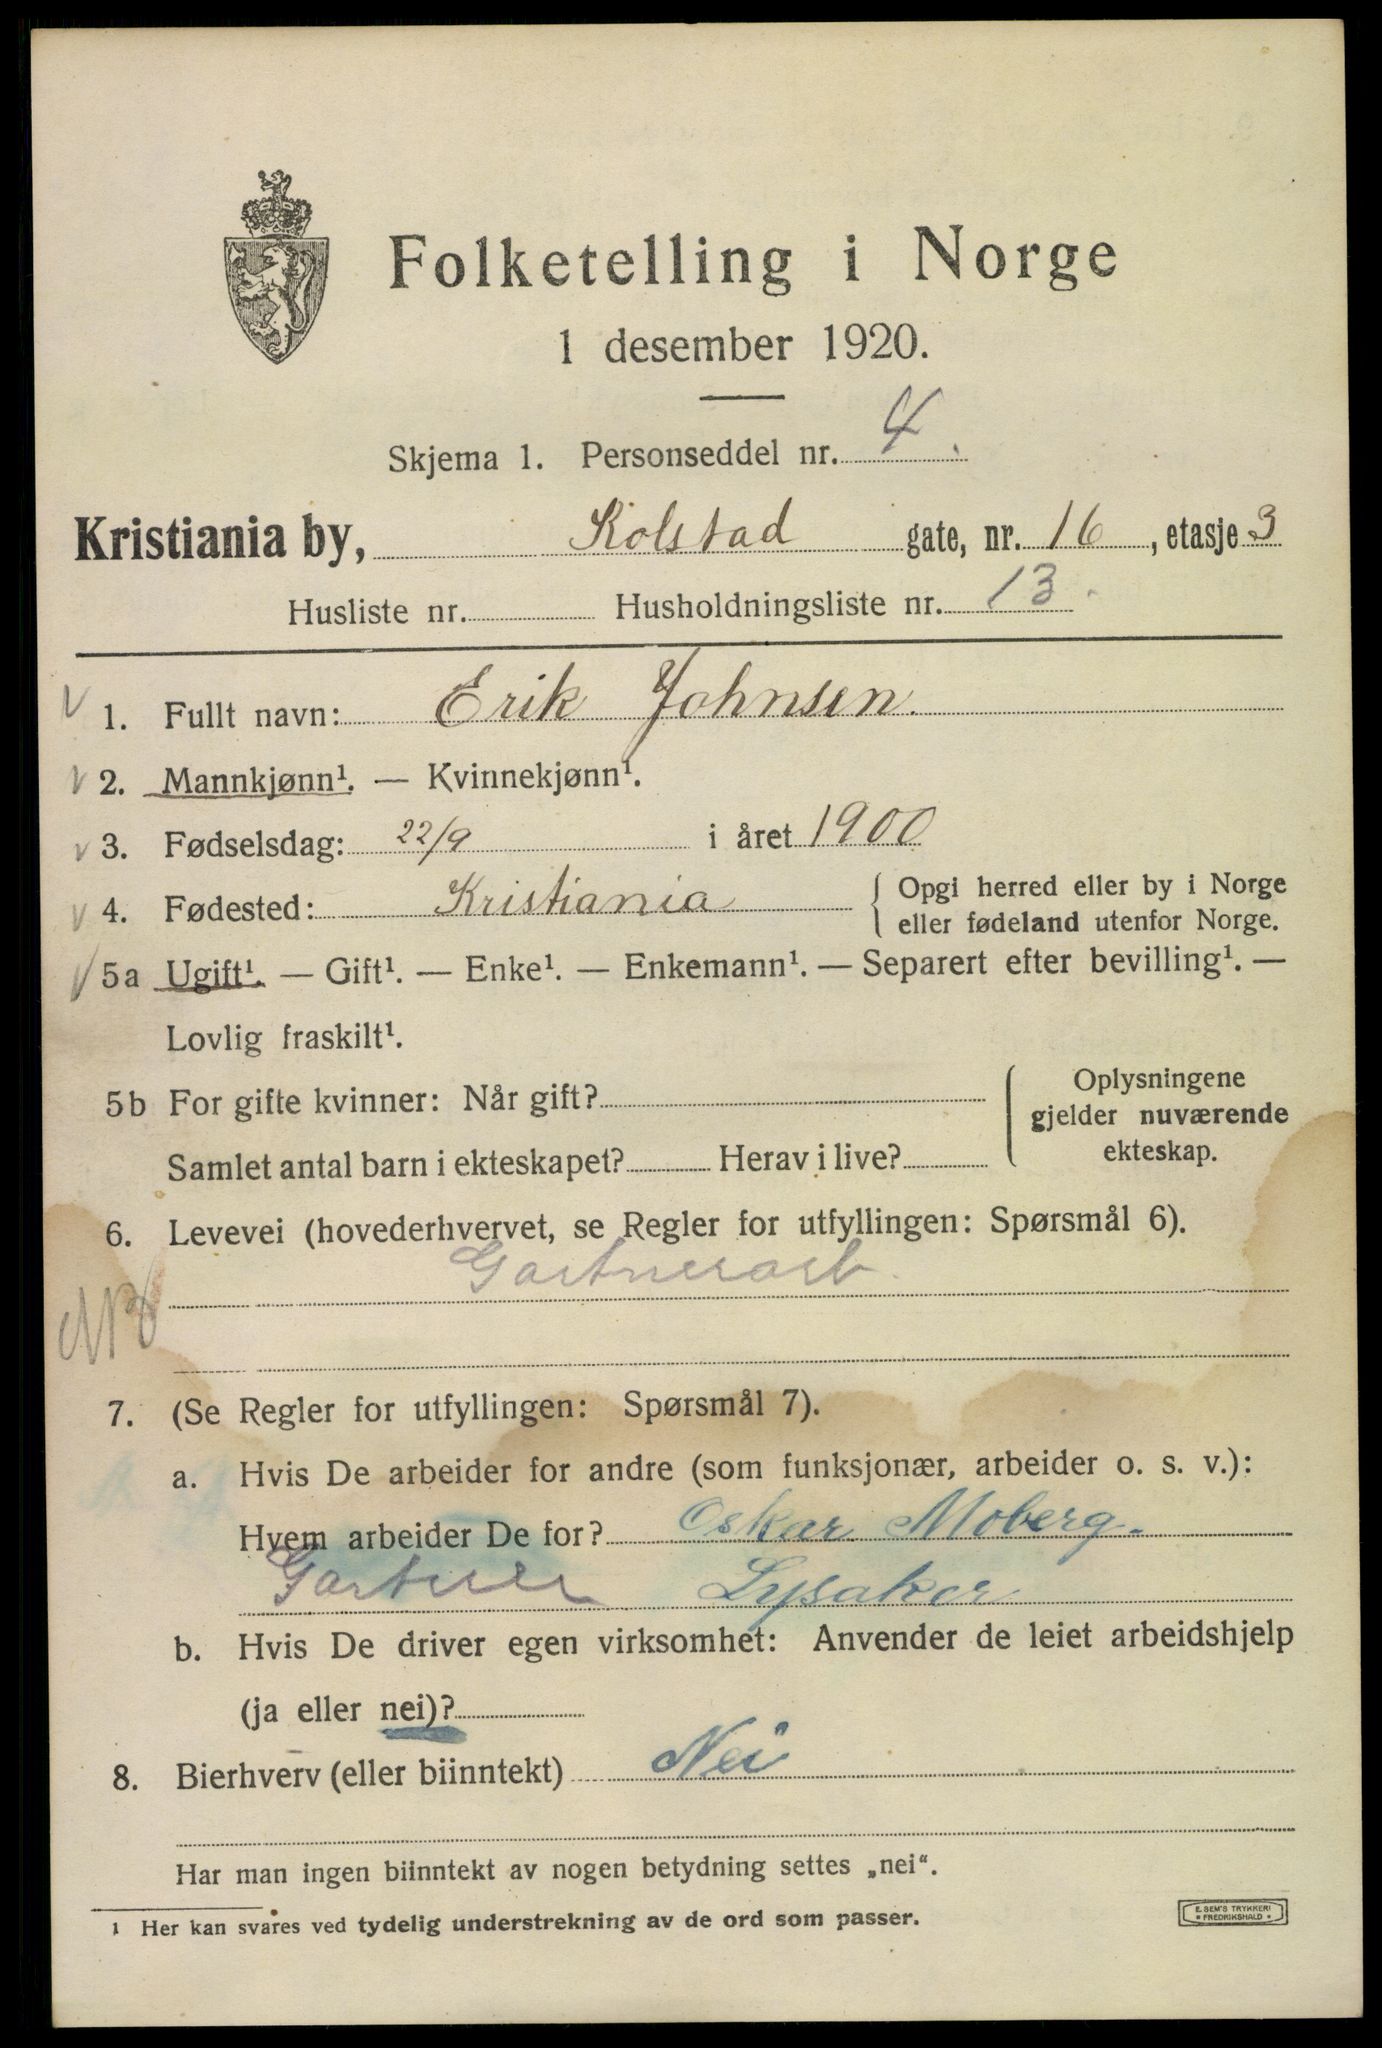 Folketelling i Norge
1 desember 1920.
Skjema 1. Personseddel nr. 4.
Kristiania by, Kolstad gate, nr. 16, etasje 3
Husliste nr. Husholdningsliste nr. 13.
1. Fullt navn: Erik Johnsen.
2. Mannkjønn¹. — Kvinnekjønn¹.
3. Fødselsdag: 22/9 i året 1900
4. Fødested: Kristiania { Opgi herred eller by i Norge
eller fødeland utenfor Norge.
5a Ugift¹. — Gift¹. — Enke¹. — Enkemann¹. — Separert efter bevilling¹. —
Lovlig fraskilt¹.
5b For gifte kvinner: Når gift?
Samlet antal barn i ekteskapet? Herav i live?
Oplysningene
gjelder nuværende
ekteskap.
6. Levevei (hovederhvervet, se Regler for utfyllingen: Spørsmål 6).
Gartnerarb.
7. (Se Regler for utfyllingen: Spørsmål 7).
a. Hvis De arbeider for andre (som funksjonær, arbeider o. s. v.):
Hvem arbeider De for? Oskar Moberg.
Gartner Lysaker
b. Hvis De driver egen virksomhet: Anvender de leiet arbeidshjelp
(ja eller nei)?
8. Bierhverv (eller biinntekt) Nei
Har man ingen biinntekt av nogen betydning settes „nei“.
1 Her kan svares ved tydelig understrekning av de ord som passer.
E. SEM'S TRYKKERI
* FREDRIKSHALD *